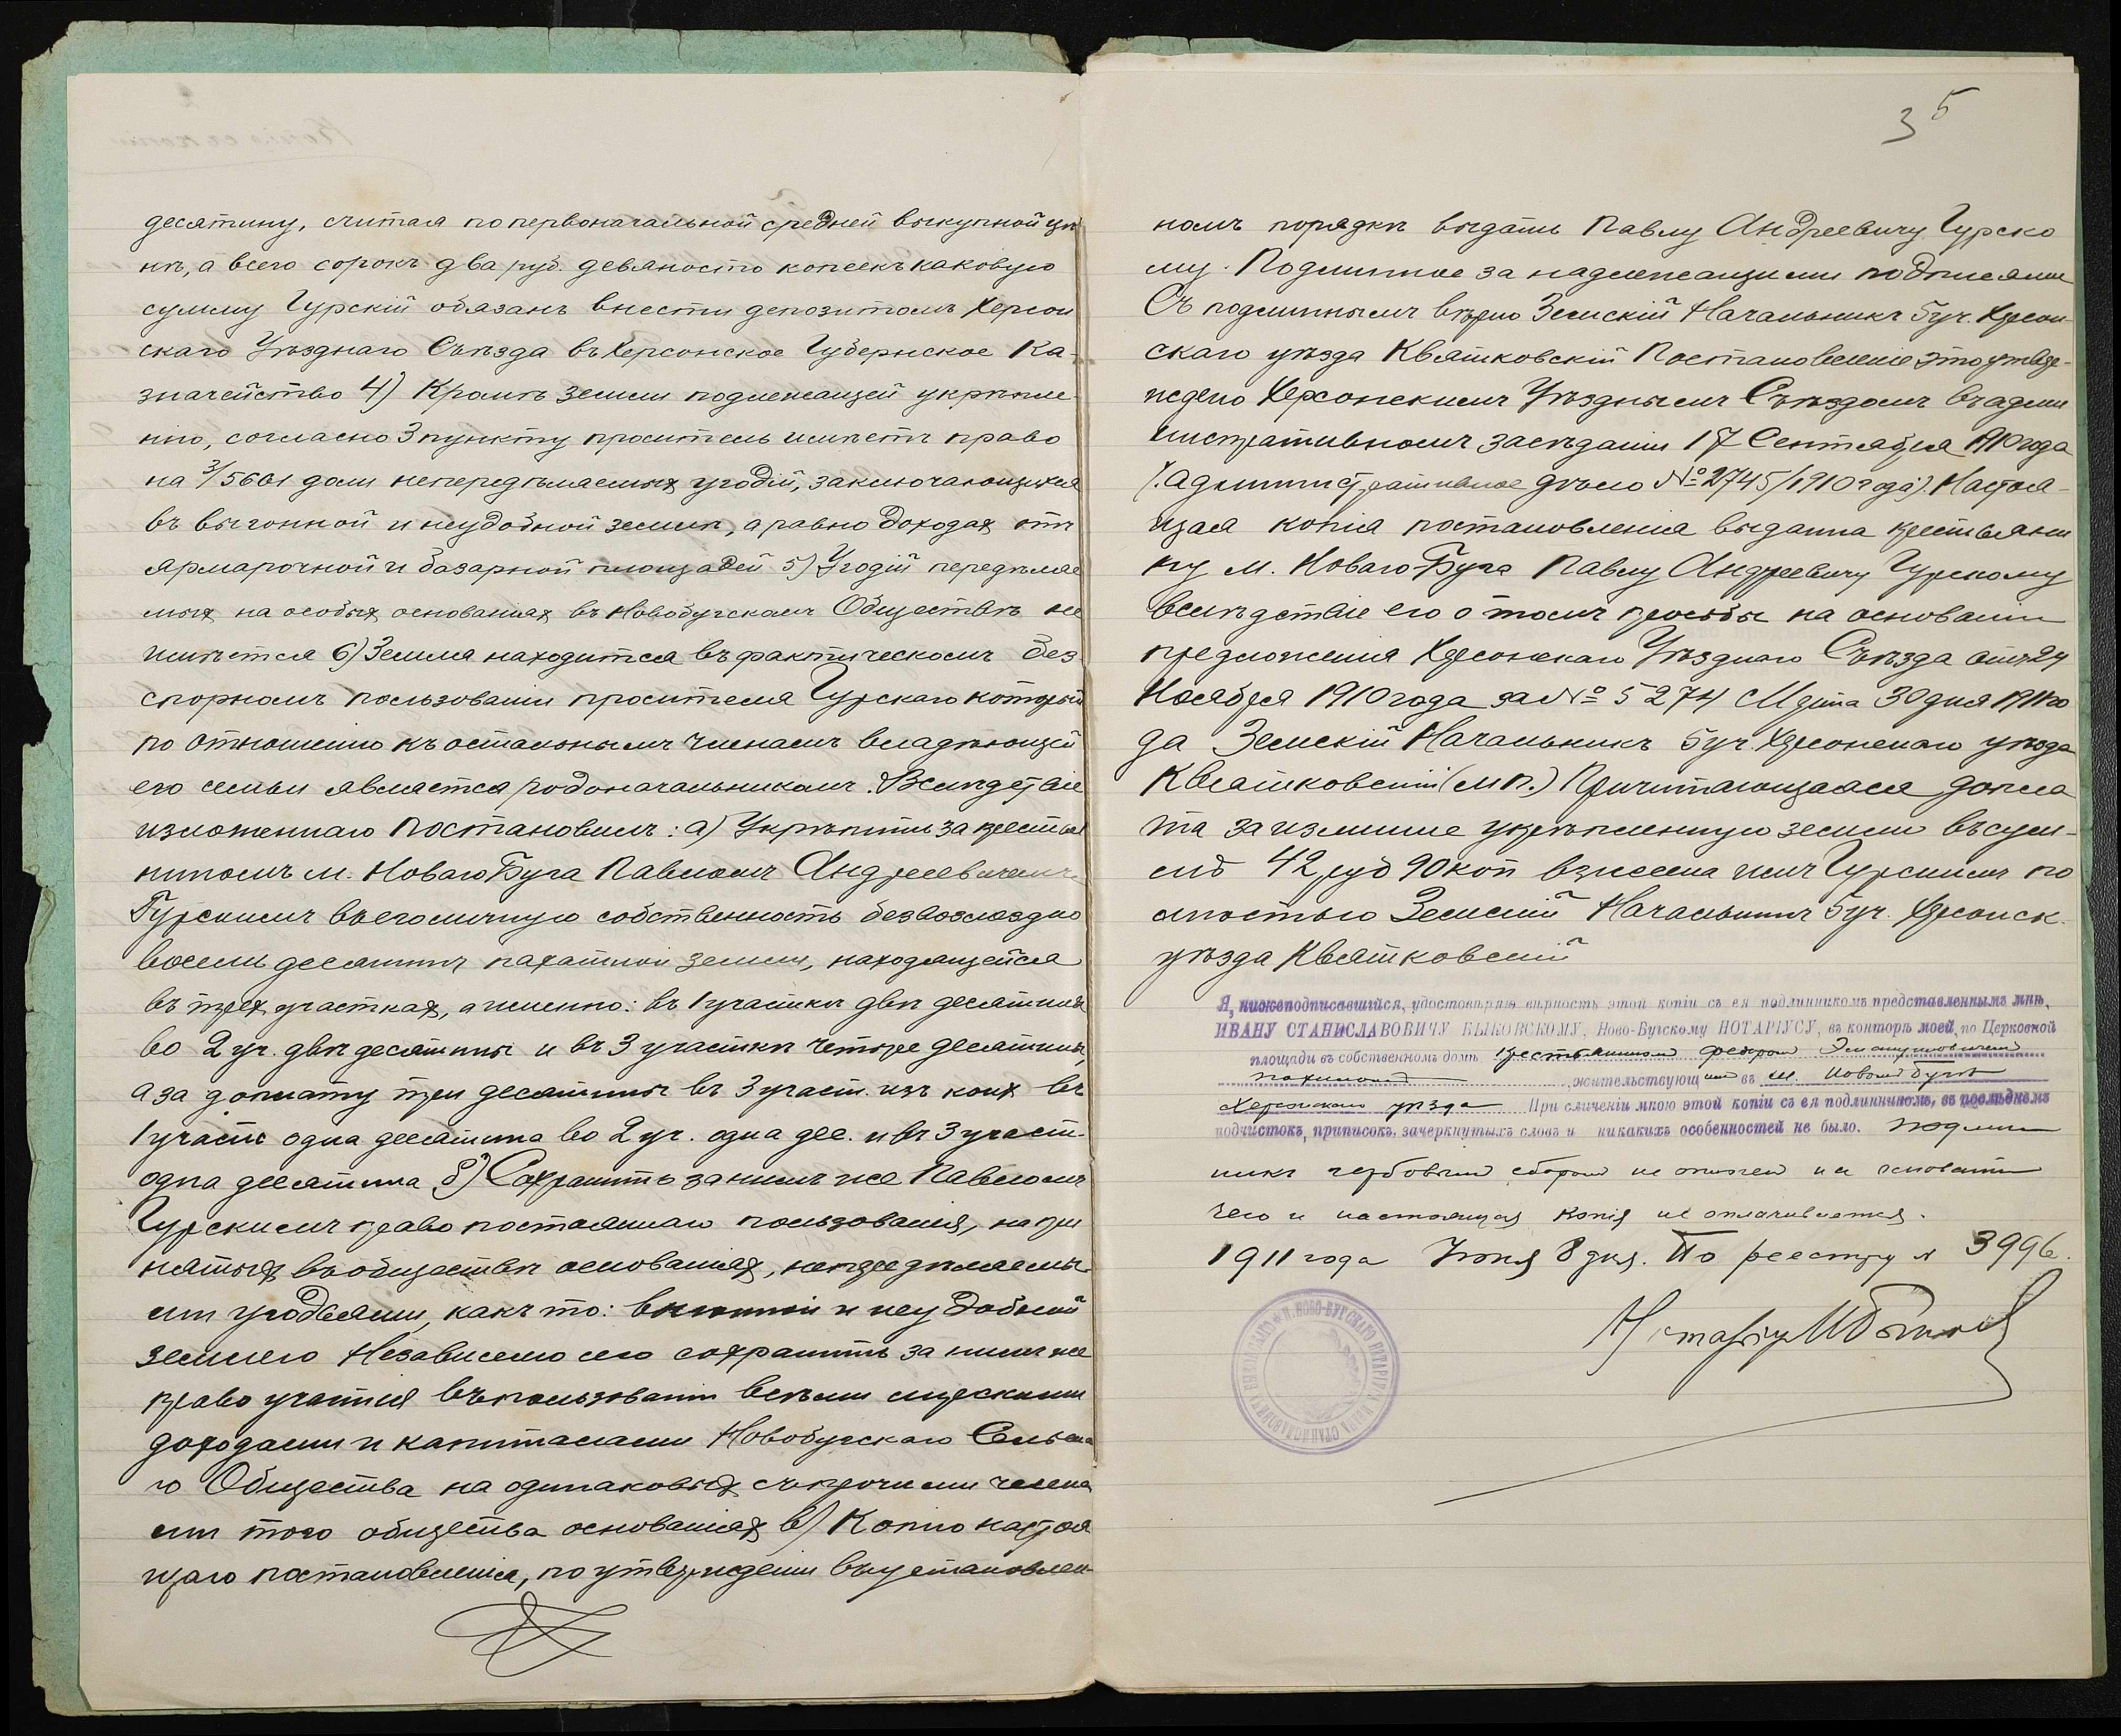 десятину, считая по первоначальной средней выкупной цѣ
нѣ, а всего сорокъ два руб. девяносто копеекъ каковую
сумму Гурскій обязанъ внести депозитомъ Херсон
скаго Уѣзднаго Съѣзда въ Херсонское Губернское Ка-
значейство 4) Кромѣ земли подлежащей укрѣпле-
нію, согласно 3 пункту проситель имѣетъ право
на 3/5601 доли непередѣляемых угодій, заключающихся
въ выгонной и неудобной земли, а равно доходах отъ
ярмарочной и базарной площадей 5) Угодій передѣляе
мых на особых основаніях въ Новобугскомъ Обществѣ не
имѣется 6) Земля находится въ фактическомъ без
спорномъ пользованіи просителя Гурскаго который
по отношенію къ остальнымъ членамъ владѣющей
его семьи является родоначальникомъ. Вслѣдствіе
изложеннаго постановилъ: а) Укрѣпить за крестья
ниномъ м. Новаго Буга Павломъ Андреевичемъ
Гурскимъ въ его личную собственность безвозмездно
восемь десятинъ пахатной земли, находящейся
въ трех участках, а именно: въ 1 участкѣ двѣ десятины
во 2 уч. двѣ десятины и въ 3 участкѣ четыре десятины,
а за доплату три десятины въ 3 участ. изъ коих въ
1 участ одна десятина во 2 уч. одна дес. и въ 3 участ.
одна десятина б) Сохранить за нимъ же Павломъ
Гурскимъ право постояннаго пользованія, на при
нятых въ обществѣ основаніях, непередѣляемы-
ми угодьями, какъ то: выгонной и неудобной
землею Независимо сего сохранить за нимъ же
право участія въ пользованіи всѣми мірскими
доходами и капиталами Новобугскаго Сельска
го Общества на одинаковых съ прочими члена
ми того общества основаніях в) Копію настоя
щаго постановленія, по утвержденіи въ установлен-
35
номъ порядкѣ выдать Павлу Андреевичу Гурско
му. Подлинное за надлежащими подписями
Съ подлиннымъ вѣрно Земскій Начальникъ 5 уч. Херсон-
скаго уѣзда Квятковскій Постановленіе это утвер-
ждено Херсонскимъ Уѣзднымъ Съѣздомъ въ адми
нистративномъ засѣданіи 17 Сентября 1910 года
(Административное дѣло № 2745/1910 года). Настоя-
щая копія постановленія выдана крестьяни
ну м. Новаго Буга Павлу Андреевичу Гурскому
вслѣдствіе его о томъ просьбы на основаніи
предложенія Херсонскаго Уѣзднаго Съѣзда отъ 24
Ноября 1910 года за № 5274 Марта 30 дня 1911 го
да Земскій Начальникъ 5 уч. Херсонскаго уѣзда
Квятковскій (М.П.) Причитающаяся допла
та за излишне укрѣпленную землю въ сум-
мѣ 42 руб 90 коп взнесена имъ Гурскимъ по
лностью Земскій Начальникъ 5 уч. Херсонск.
уѣзда Квятковскій
Я, нижеподписавшійся, удостовѣряю вѣрность этой копіи съ ея подлинникомъ представленнымъ мнѣ,
ИВАНУ СТАНИСЛАВОВИЧУ БЫКОВСКОМУ, Ново-Бугскому НОТАРІУСУ, въ конторѣ моей, по Церковной
площади въ собственномъ домѣ крестьяниномъ Федоромъ
жительствующимъ въ м. Новомъ Бугѣ
Херсонскаго уѣзда При сличеніи мною этой копіи съ ея подлинникомъ, въ послѣднемъ
подчистокъ, приписокъ, зачеркнутыхъ словъ и никакихъ особенностей не было. Подлин
никъ гербовымъ сборомъ не оплаченъ на основаніи
чего и настоящая копія не оплачивается.
1911 года Іюня 8 дня. По реестру № 3996.
Нотаріусъ И Быковскій